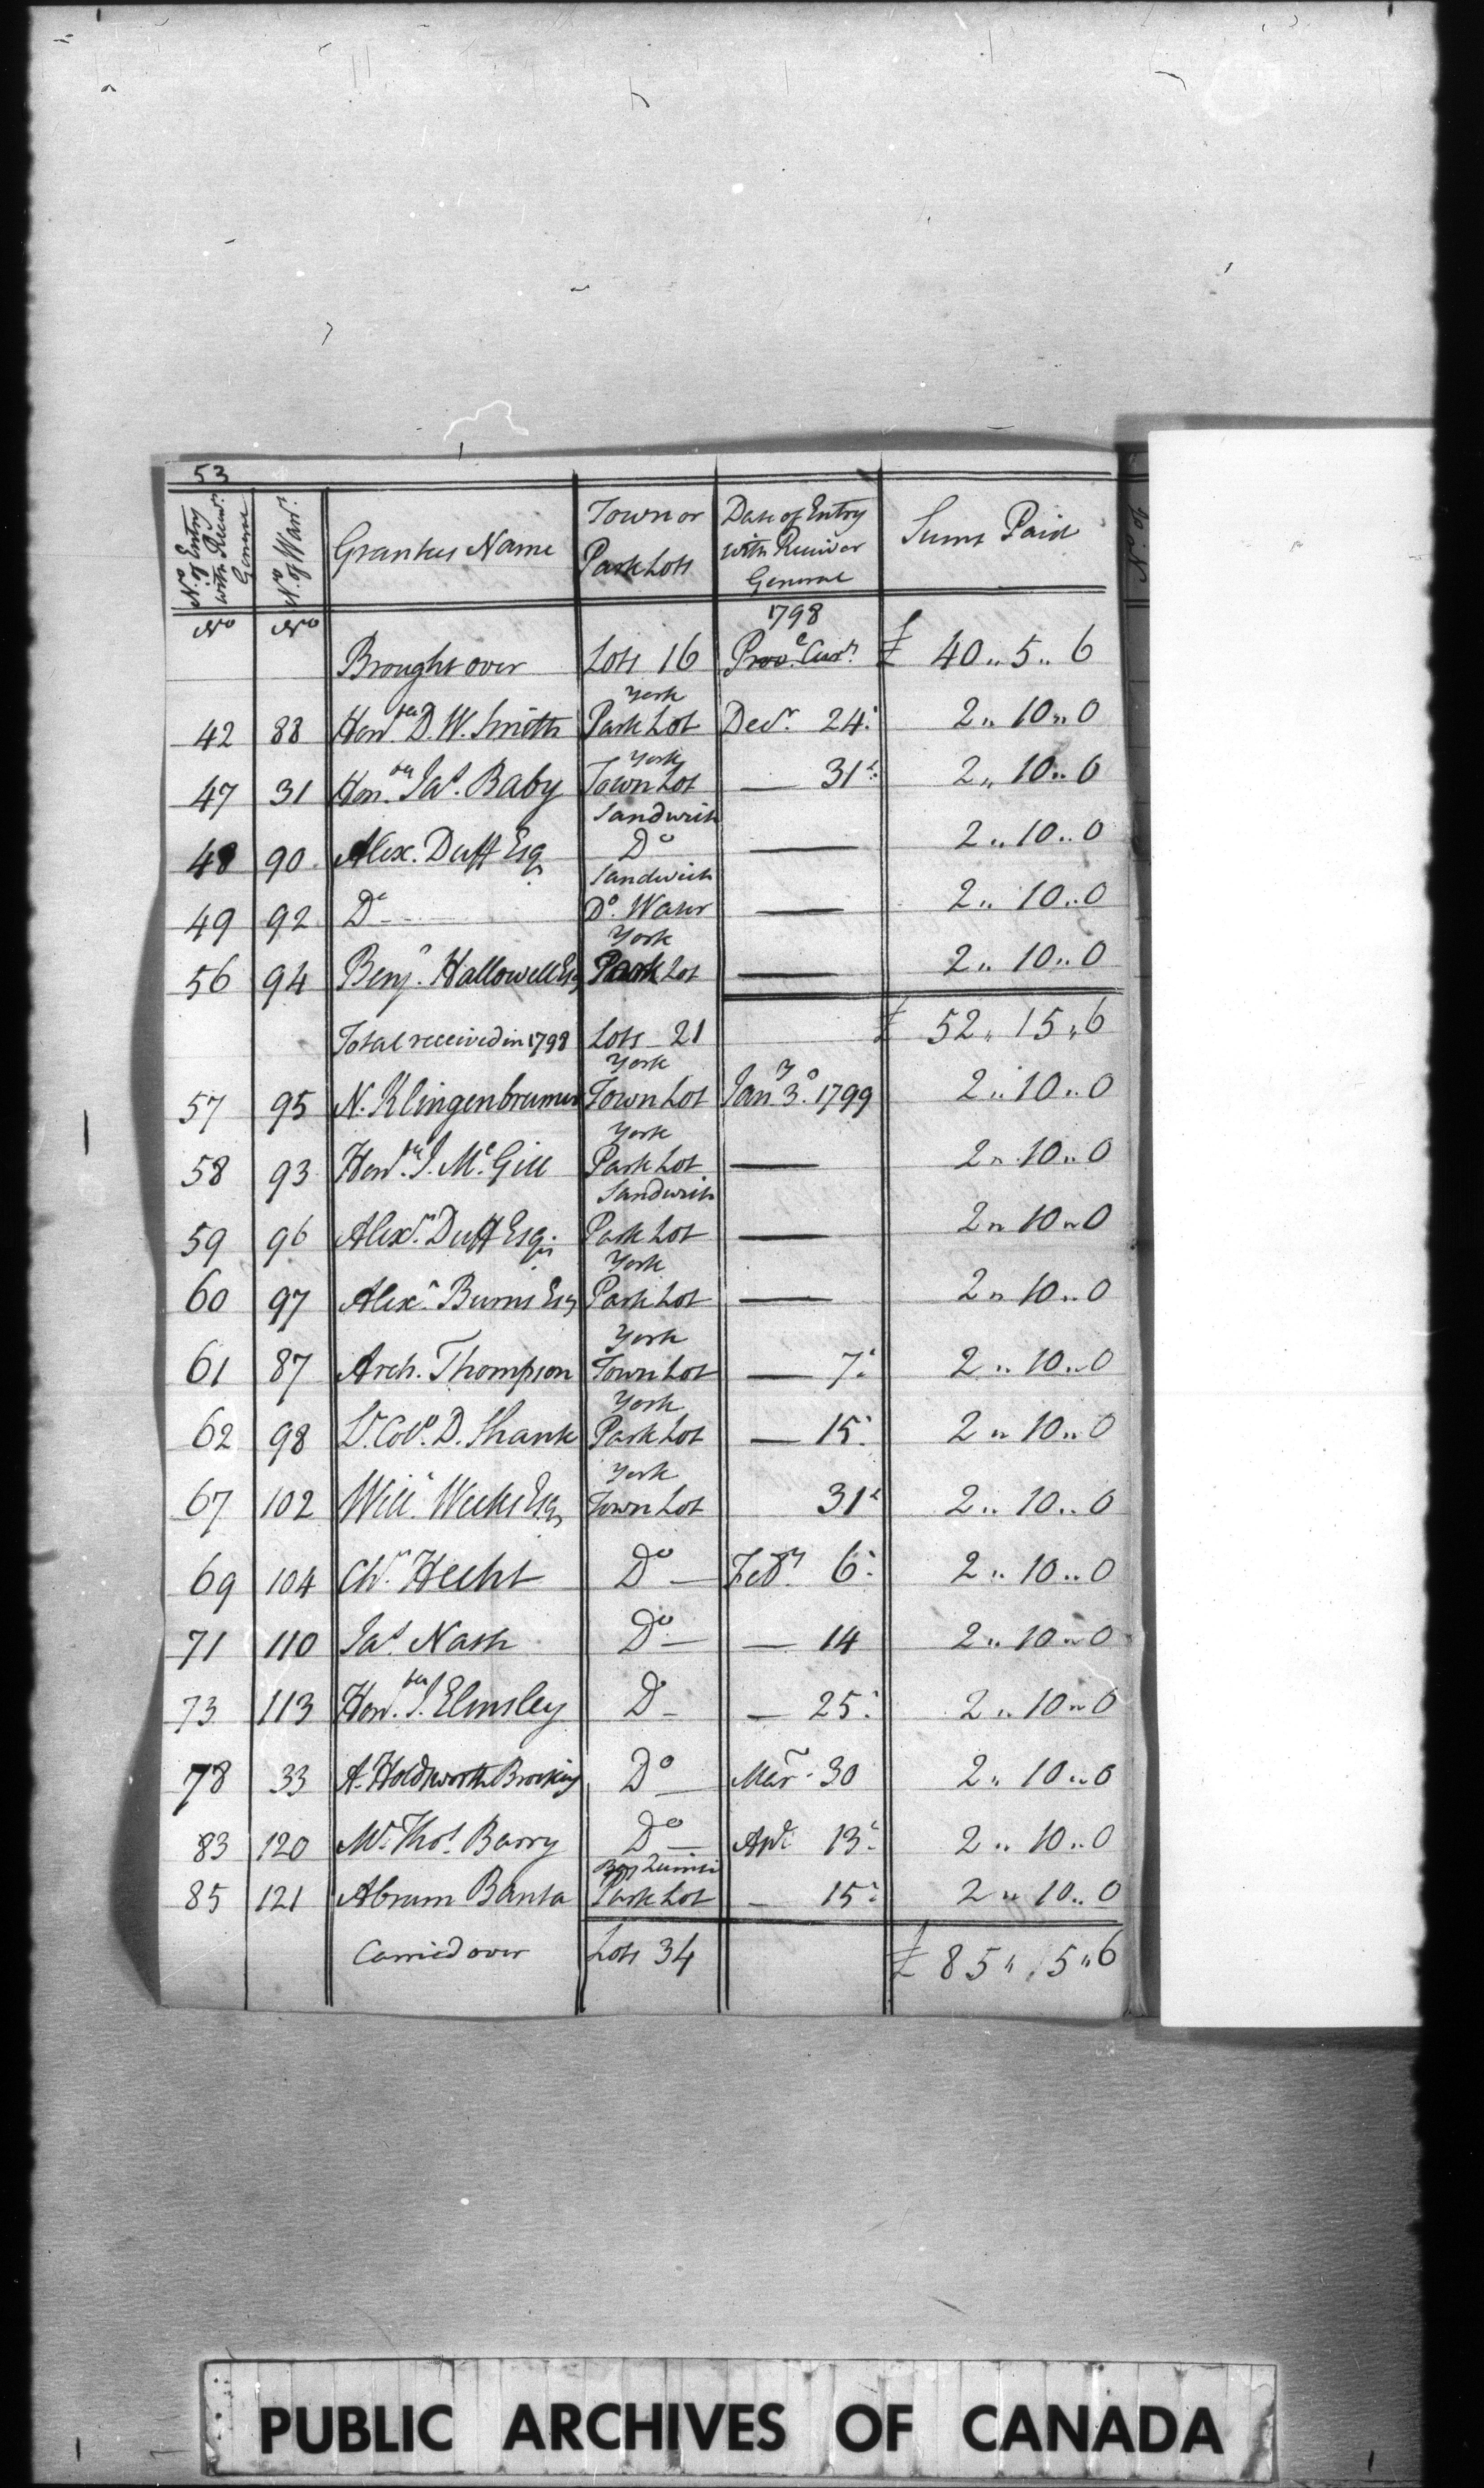 53
No. of Entry with Recvr. General | No. of Warrt. | Grantees Name | Town or Park Lots | Date of Entry with Receiver General | Sums Paid
No | No | 1798
Brought over | Lots 16 | Prove. Curr. | £ 40 " 5 " 6
42 | 88 | Honble. D. W. Smith | York Park Lot | Decr. 24. | 2 " 10 " 0
47 | 31 | Honble. Jas. Baby | York Town Lot | — 31st | 2 " 10 " 0
48 | 90 | Alex. Duff Esq | Sandwich Do | — | 2 " 10 " 0
49 | 92 | Do | Sandwich Do. Water | — | 2 " 10 " 0
56 | 94 | Benjn. Hallowell Esq | York Park Lot | — | 2 " 10 " 0
Total received in 1798 | Lots 21 | £ 52 " 15 " 6
57 | 95 | N. Klingenbrumer | York Town Lot | Jany 3d. 1799 | 2 " 10 " 0
58 | 93 | Honble. J. McGill | York Park Lot | — | 2 " 10 " 0
59 | 96 | Alexr. Duff Esq. | Sandwich Park Lot | — | 2 " 10 " 0
60 | 97 | Alexr. Burns Esq | York Park Lot | — | 2 " 10 " 0
61 | 87 | Arch. Thompson | York Town Lot | — 7. | 2 " 10 " 0
62 | 98 | Lt. Col. D. Shank | York Park Lot | — 15. | 2 " 10 " 0
67 | 102 | Willm. Weeks Esq | York Town Lot | 31st | 2 " 10 " 0
69 | 104 | Chr. Hecht | Do — | Feby. 6. | 2 " 10 " 0
71 | 110 | Jas. Nash | Do — | — 14 | 2 " 10 " 0
73 | 113 | Honble. J. Elmsley | Do — | — 25. | 2 " 10 " 0
78 | 33 | A. Holdsworth Brooking | Do — | Mar. 30 | 2 " 10 " 0
83 | 120 | Mr. Thos. Barry | Do — | Apl. 13. | 2 " 10 " 0
85 | 121 | Abram Banta | Park Lot | — 15. | 2 " 10 " 0
Carried over | Lots 34 | £ 85 " 5 " 6
No. of
PUBLIC ARCHIVES OF CANADA